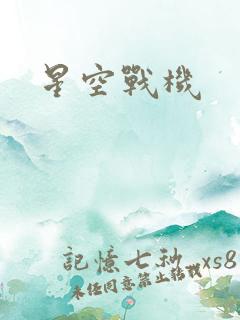 星空戰機
記憶七秒 xs8
未任同意禁止轉載